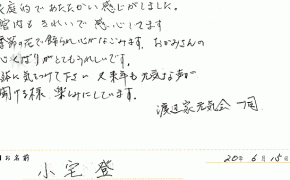 家庭的であたたかい感じがしました。
館内もきれいで感心してます
季節の花で飾られ心がなごみます。おかみさんの
心くばりがとてもうれしいです。
お体に気をつけて下さい 又来年も元気な声が
聞ける様、楽しみにしています。
渡辺家元気会 一同
お名前
小宅 登
20年 6月 15日